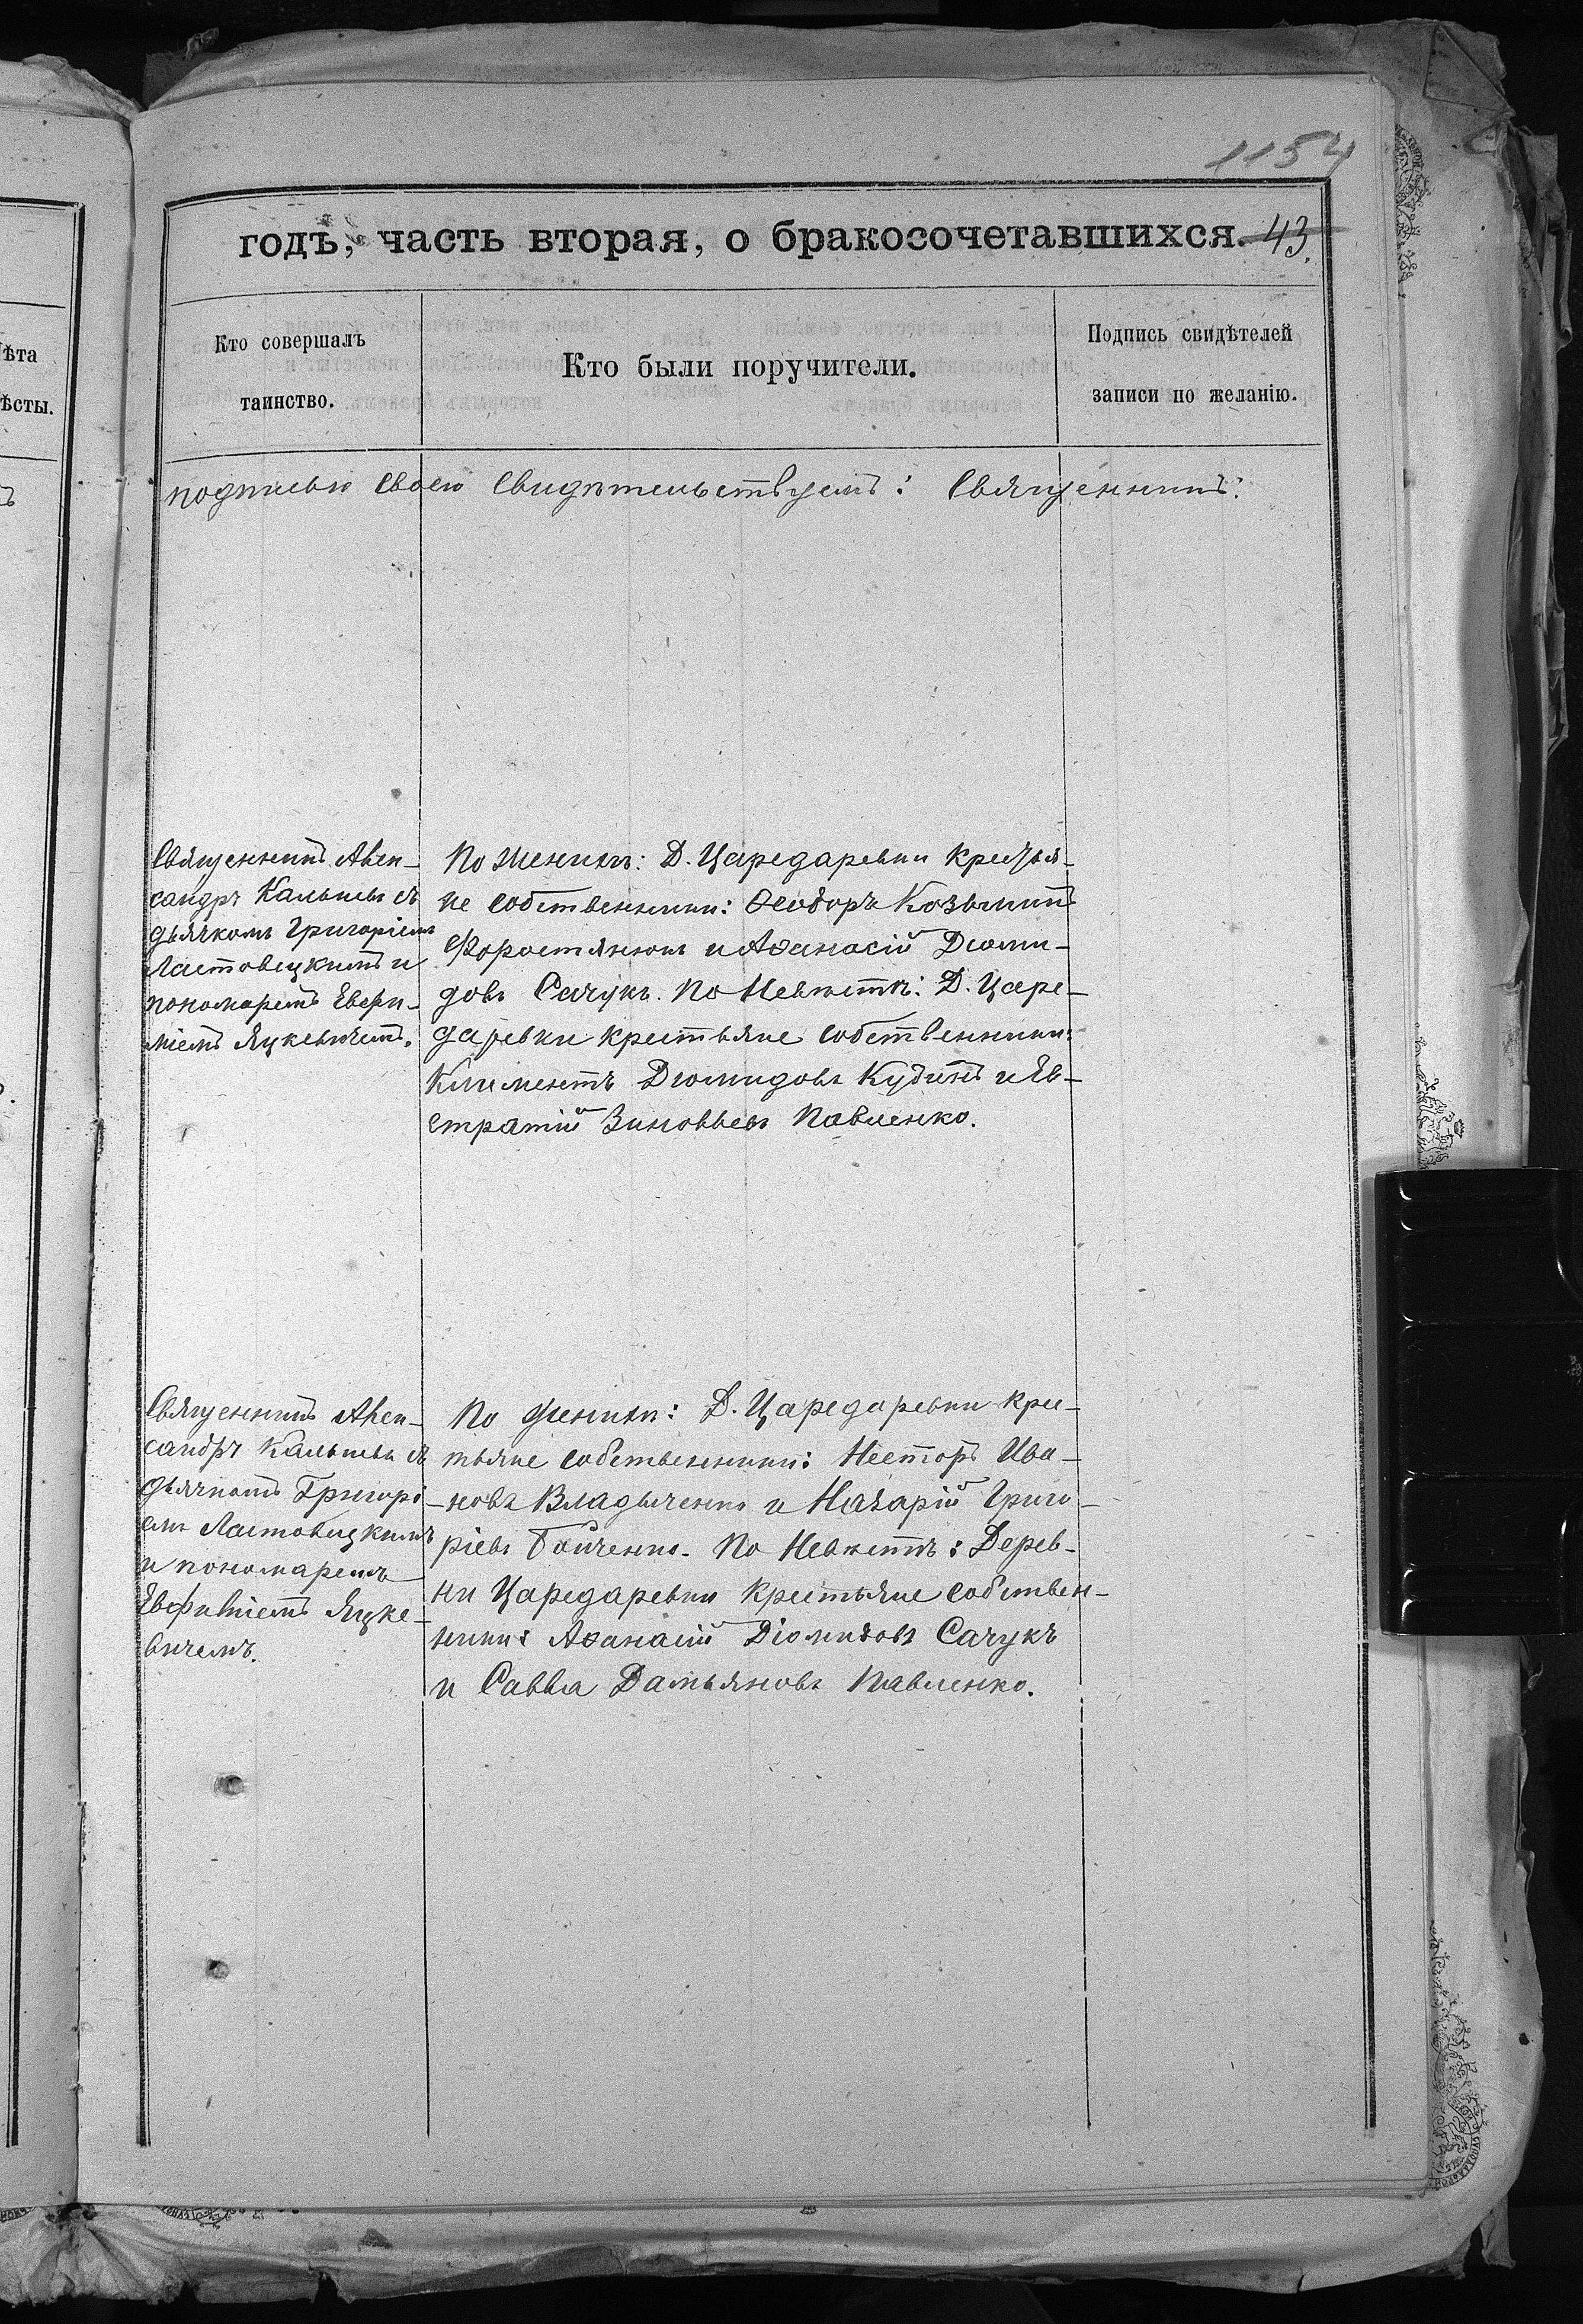 1154
годъ, часть вторая, о бракосочетавшихся. 43.
ѣта
ѣсты.
Кто совершалъ
таинство.
Кто были поручители.
Подпись свидѣтелей
записи по желанію.
подписью своею свидѣтельствуемъ: Священникъ:
Священникъ Алек-
сандръ съ
дьячкомъ Григоріемъ
Ластовецкимъ и
пономаремъ Евфи-
міемъ Яцкевичемъ.
По женихѣ: Д. Царедаревки крестья-
не собственники: Ѳеодоръ Козьминъ
Форостянюкъ и Аѳанасій Діоми-
довъ Сачукъ. По невѣстѣ: Д. Царе-
даревки крестьяне собственники:
Климентъ Діомидовъ Кудинъ и Ев-
стратій Зиновьевъ Павленко.
Священникъ Алек-
сандръ съ
дьячкомъ Григорі-
емъ Ластовецкимъ
и пономаремъ
Евфиміемъ Яцке-
вичемъ.
По женихѣ: Д. Царедаревки крес-
тьяне собственники: Несторъ Ива-
новъ Владыченко и Назарій Григо-
ріевъ Бойченко. По невѣстѣ: Дерев-
ни Царедаревки крестьяне собствен-
ники: Аѳанасій Діомидовъ Сачукъ
и Савва Дамьяновъ Павленко.